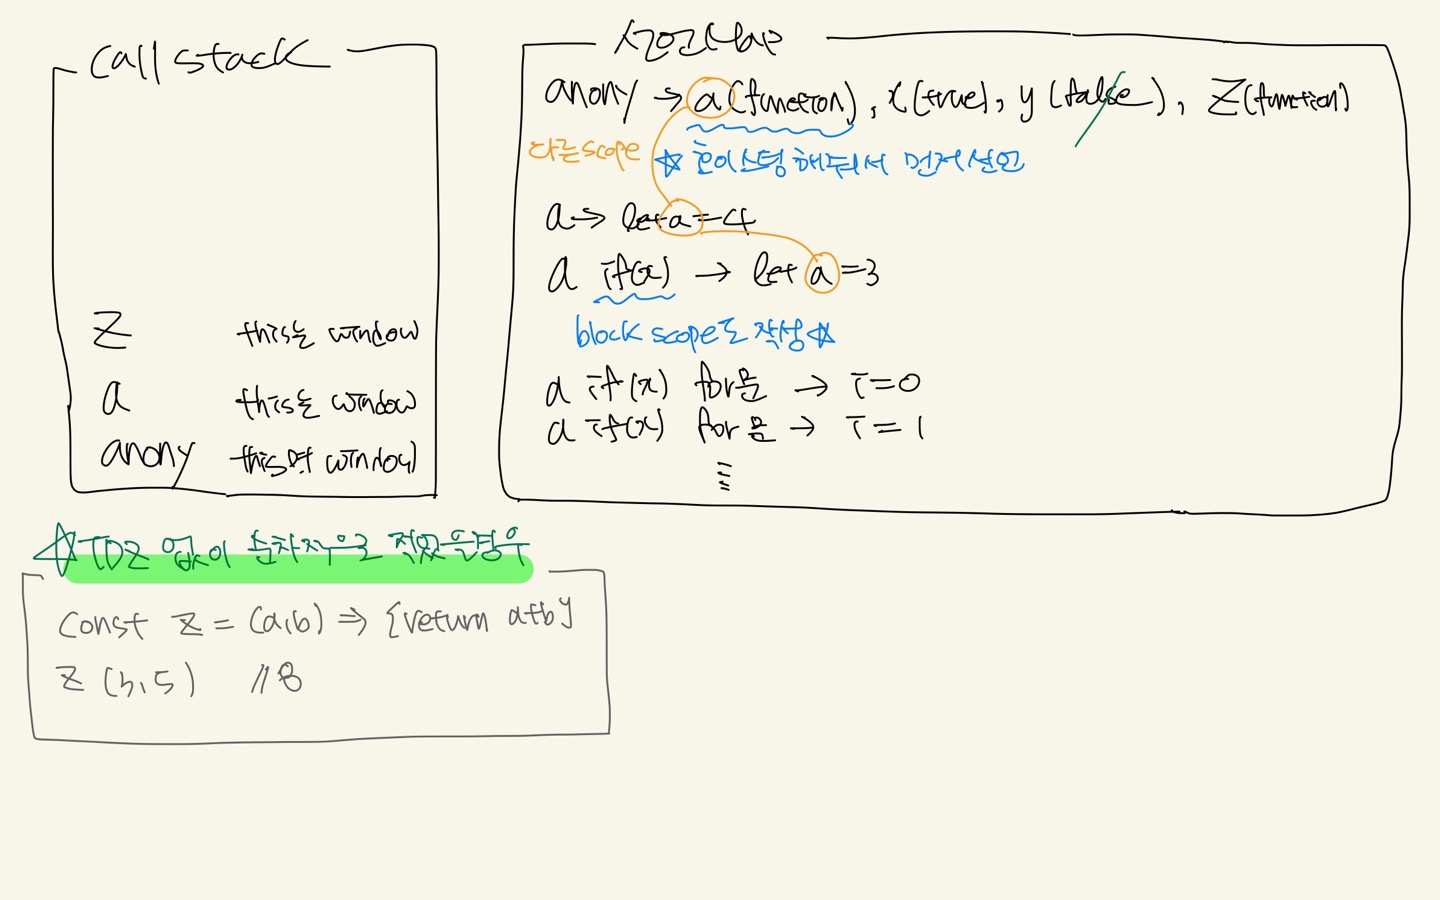 Call stack
z this는 window
a this는 window
anony this역 window
선언Map
anony → a(function), x(true), y(false), z(function)
다른scope ☆ 호이스팅해줘서 먼저선언
a → let a=4
a if(x) → let a=3
block scope도 작성☆
a if(x) for문 → i=0
a if(x) for문 → i=1
☆TDZ 없이 순차적으로 적었을경우
const z = (a,b) => {return a+b}
z (3,5) //8